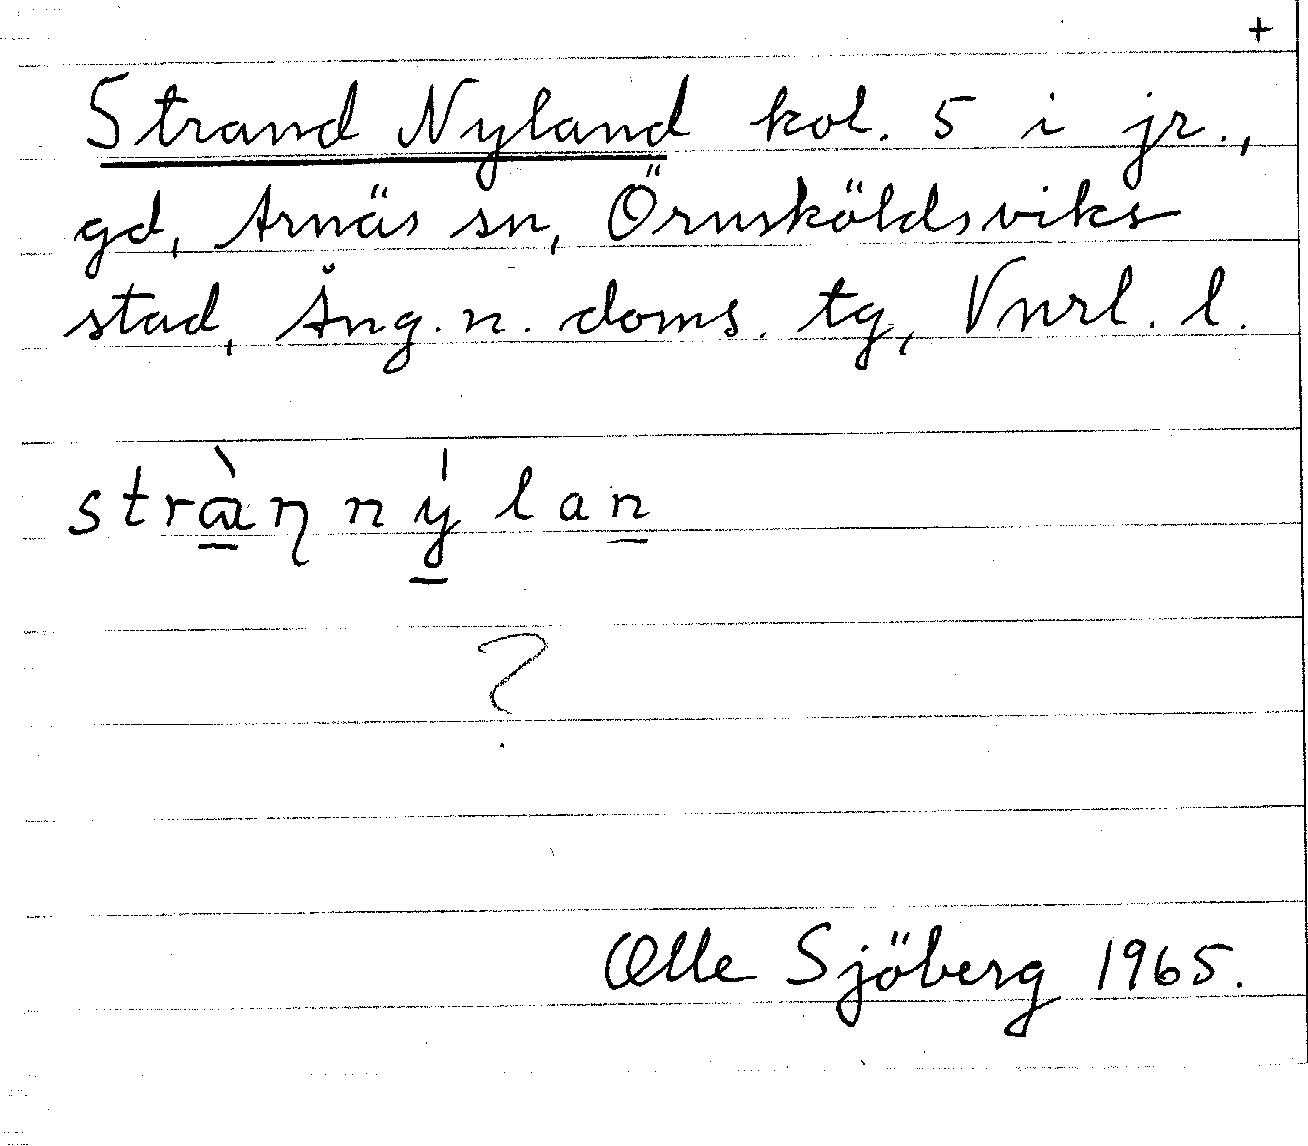 +
Strand Nyland kol. 5 i jr.,
gd, Arnäs sn, Örnsköldsviks
stad, Ång. n. doms. tg, Vnrl. l.
stràŋ nýlan
?
Olle Sjöberg 1965.